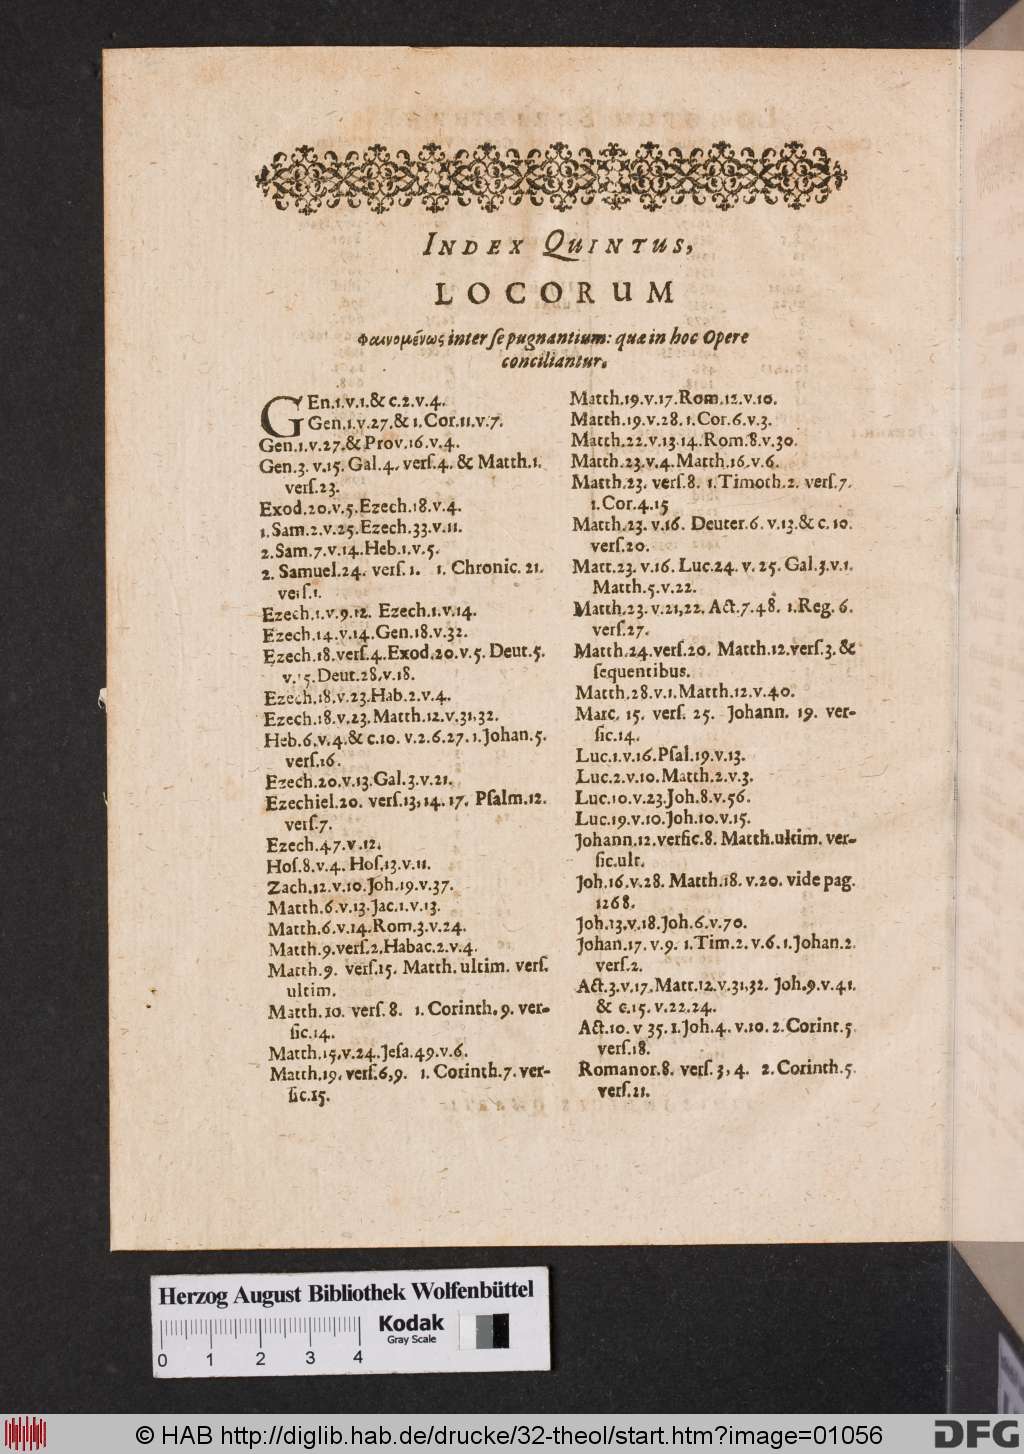 INDEX QUINTUS,
LOCORUM
Φαινομένως inter ſe pugnantium: quæ in hoc Opere
conciliantur.
GEn.1.v.1.& c.2.v.4.
Gen.1.v.27.& 1.Cor.11.v.7.
Gen.1.v.27.& Prov.16.v.4.
Gen.3. v.15. Gal.4. verſ.4. & Matth.1.
verſ.23.
Exod.20.v.5.Ezech.18.v.4.
1.Sam.2.v.25.Ezech.33.v.11.
2.Sam.7.v.14.Heb.1.v.5.
2. Samuel.24. verſ.1. 1. Chronic. 21.
verſ.1.
Ezech.1.v.9.12. Ezech.1.v.14.
Ezech.14.v.14.Gen.18.v.32.
Ezech.18.verſ.4.Exod.20.v.5. Deut.5.
v.15.Deut.28.v.18.
Ezech.18.v.23.Hab.2.v.4.
Ezech.18.v.23.Matth.12.v.31,32.
Heb.6.v.4.& c.10. v.2.6.27.1.Johan.5.
verſ.16.
Ezech.20.v.13.Gal.3.v.21.
Ezechiel.20. verſ.13,14.17. Pſalm.12.
verſ.7.
Ezech.47.v.12.
Hoſ.8.v.4. Hoſ.13.v.11.
Zach.12.v.10.Joh.19.v.37.
Matth.6.v.13.Jac.1.v.13.
Matth.6.v.14.Rom.3.v.24.
Matth.9.verſ.2.Habac.2.v.4.
Matth.9. verſ.15. Matth. ultim. verſ.
ultim.
Matth.10. verſ. 8. 1. Corinth. 9. ver-
ſic.14.
Matth.15.v.24.Jeſa.49.v.6.
Matth.19. verſ.6,9. 1. Corinth.7. ver-
ſic.15.
Matth.19.v.17.Rom.12.v.10.
Matth.19.v.28.1.Cor.6.v.3.
Matth.22.v.13.14.Rom.8.v.30.
Matth.23.v.4.Matth.16.v.6.
Matth.23. verſ.8. 1.Timoth.2. verſ.7.
1.Cor.4.15
Matth.23. v.16. Deuter.6. v.13.& c. 10.
verſ.20.
Matt.23. v.16. Luc.24. v. 25. Gal.3.v.1.
Matth.5.v.22.
Matth.23. v.21,22. Act.7.48. 1.Reg. 6.
verſ.27.
Matth.24.verſ.20. Matth.12.verſ.3. &
ſequentibus.
Matth.28.v.1.Matth.12.v.40.
Marc. 15. verſ. 25. Johann. 19. ver-
ſic.14.
Luc.1.v.16.Pſal.19.v.13.
Luc.2.v.10.Matth.2.v.3.
Luc.10.v.23.Joh.8.v.56.
Luc.19.v.10.Joh.10.v.15.
Johann.12.verſic.8. Matth.ultim. ver-
ſic.ult.
Joh.16.v.28. Matth.18. v.20. vide pag.
1268.
Joh.13.v.18.Joh.6.v.70.
Johan.17. v.9. 1.Tim.2. v.6.1.Johan.2.
verſ.2.
Act.3.v.17.Matt.12.v.31,32. Joh.9.v.41.
& c.15. v.22.24.
Act.10. v 35.1.Joh.4. v.10. 2.Corint.5.
verſ.18.
Romanor.8. verſ. 3, 4. 2. Corinth.5.
verſ.21.
Herzog August Bibliothek Wolfenbüttel
Kodak
Gray Scale
0 1 2 3 4
© HAB http://diglib.hab.de/drucke/32-theol/start.htm?image=01056
DFG